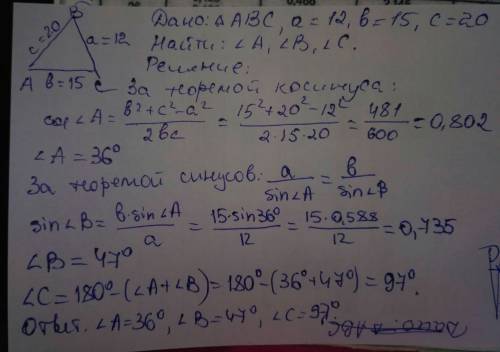 Дано: △ABC, a = 12, b = 15, c = 20
Найти: ∠A, ∠B, ∠C.
Решение:
B
c=20
a=12
A b=15 C
За теоремой косинуса:
cos ∠A = (b² + c² - a²)/(2bc) = (15² + 20² - 12²)/(2·15·20) = 481/600 = 0,802
∠A = 36°
За теоремой синусов: a/sin∠A = b/sin∠B
sin∠B = (b·sin∠A)/a = (15·sin36°)/12 = (15·0,588)/12 = 0,735
∠B = 47°
∠C = 180° - (∠A + ∠B) = 180° - (36° + 47°) = 97°.
Ответ. ∠A = 36°, ∠B = 47°, ∠C = 97°.